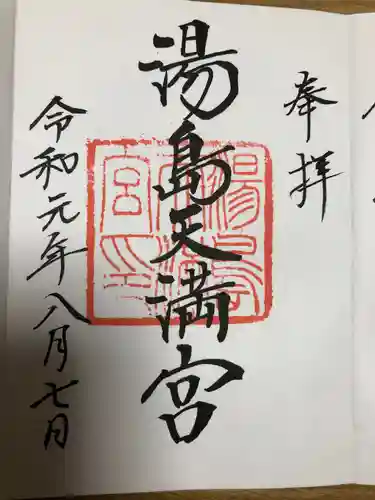 奉拝
湯島天満宮
令和元年八月七日